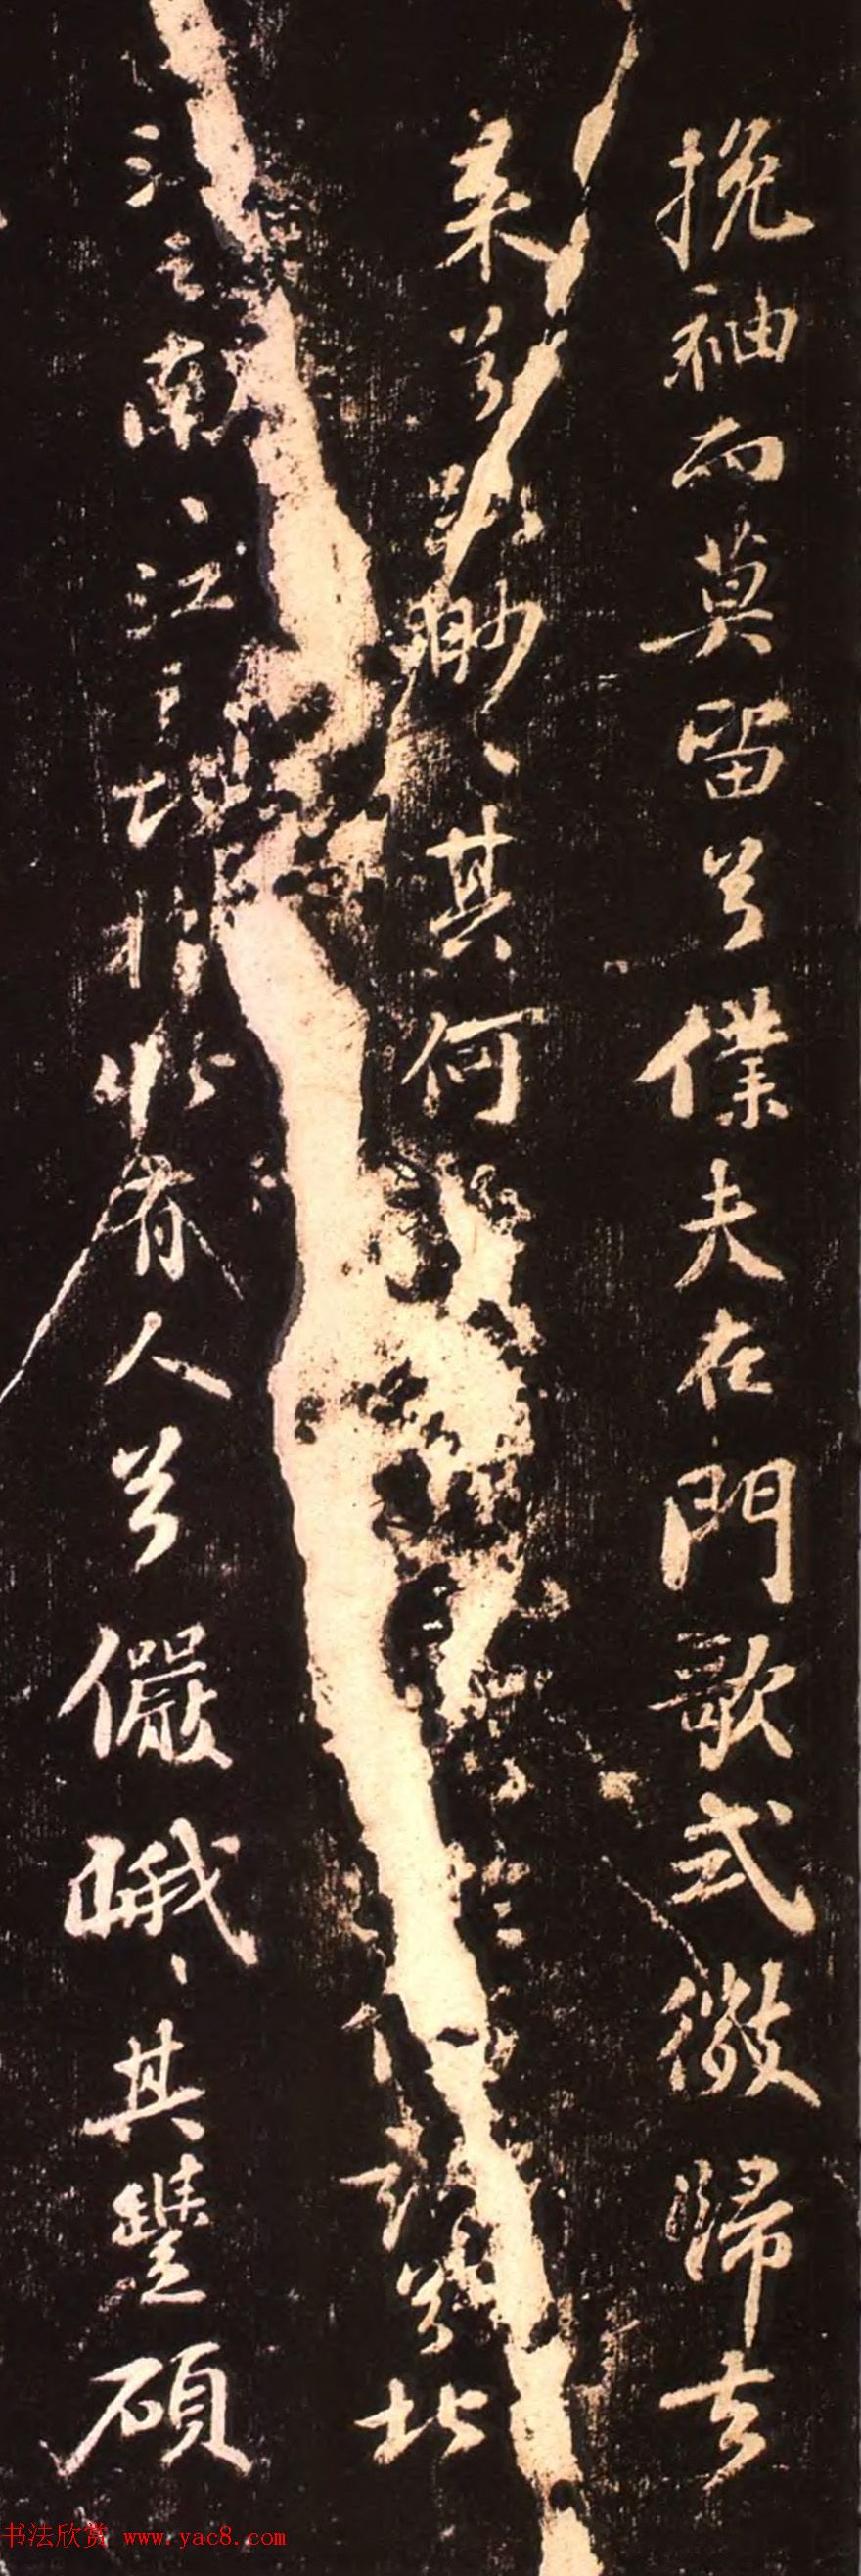 挽袖而莫留兮僕夫在門歌式微歸去
来兮路渺、其何
兮北
江之南、江之
有人兮儼峨、其豐碩
书法欣赏 www.yac8.com